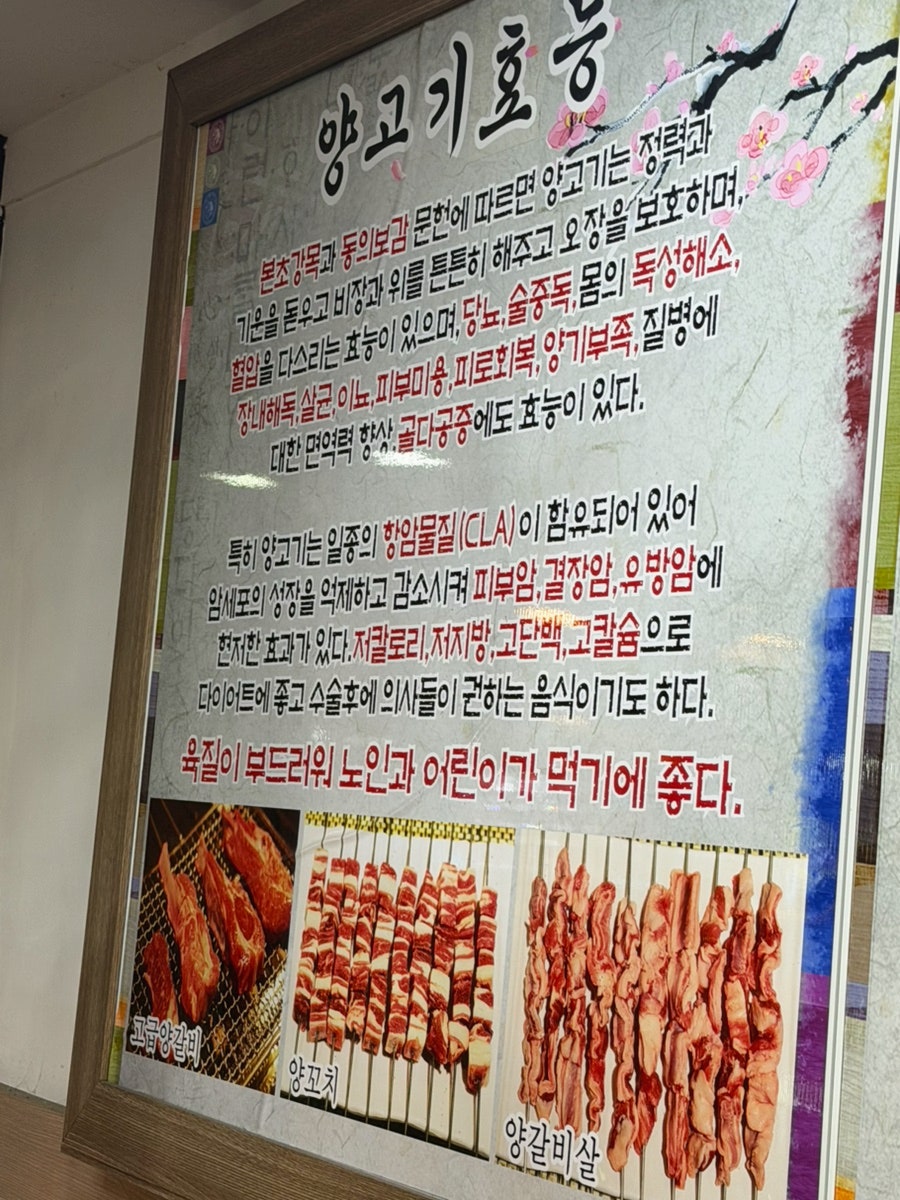 양고기효능
본초강목과 동의보감 문헌에 따르면 양고기는 정력과
기운을 돋우고 비장과 위를 튼튼히 해주고 오장을 보호하며,
혈압을 다스리는 효능이 있으며,당뇨,술중독,몸의 독성해소,
장내해독,살균,이뇨,피부미용,피로회복,양기부족,질병에
대한 면역력 향상,골다공증에도 효능이 있다.
특히 양고기는 일종의 항암물질(CLA)이 함유되어 있어
암세포의 성장을 억제하고 감소시켜 피부암,결장암,유방암에
현저한 효과가 있다.저칼로리,저지방,고단백,고칼슘으로
다이어트에 좋고 수술후에 의사들이 권하는 음식이기도 하다.
육질이 부드러워 노인과 어린이가 먹기에 좋다.
고급양갈비
양꼬치
양갈비살